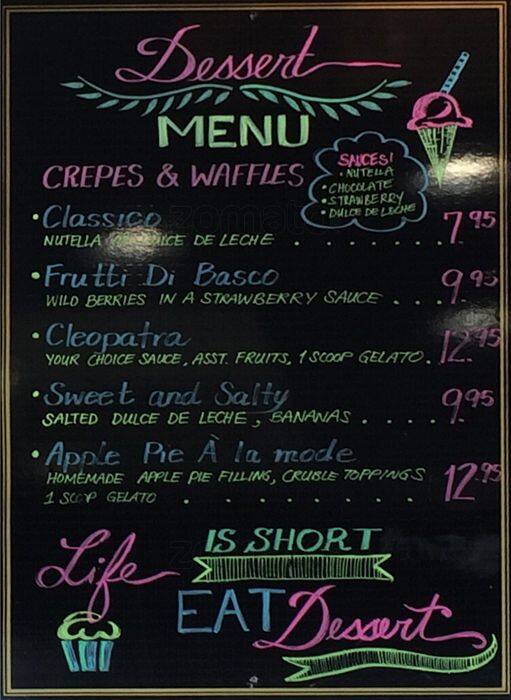 Dessert
MENU
CREPES & WAFFLES
SAUCES!
• NUTELLA
• CHOCOLATE
• STRAWBERRY
• DULCE DE LECHE
• Classico
NUTELLA DULCE DE LECHE . . . . . 7.95
• Frutti Di Basco
WILD BERRIES IN A STRAWBERRY SAUCE . . . 9.95
• Cleopatra
YOUR CHOICE SAUCE, ASST. FRUITS, 1 SCOOP GELATO. 12.95
• Sweet and Salty
SALTED DULCE DE LECHE, BANANAS . . . . . 9.95
• Apple Pie À la mode
HOMEMADE APPLE PIE FILLING, CRUBLE TOPPINGS 12.95
1 SCOOP GELATO . . . . . . . .
Life IS SHORT
EAT Dessert